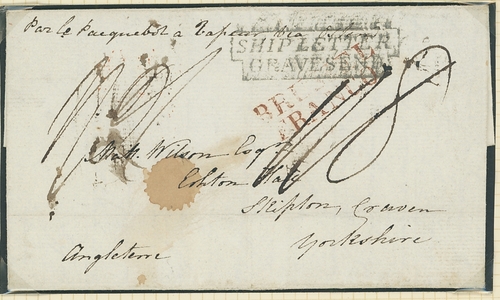 Par le Pacquebot à Vapeur Via
SHIP LETTER
GRAVESEND
FRANCO
Matt. Wilson Esqr
Eshton Hall
Skipton, Craven
Yorkshire
Angleterre